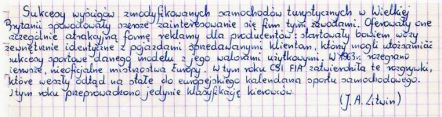 - Sukcesy wyścigów zmodyfikowanych samochodów turystycznych w Wielkiej
Brytanii spowodowały szersze zainteresowanie się firm tymi zawodami. Oferowały one
szczególnie atrakcyjną formę reklamy dla producentów: startowały bowiem wozy
zewnętrznie identyczne z pojazdami sprzedawanymi klientom, którzy mogli utożsamiać
sukcesy sportowe danego modelu z jego walorami użytkowymi. W 1963r. rozegrano
pierwsze, nieoficjalne mistrzostwa Europy. W tym roku CSI FIA zatwierdziła te rozgrywki,
które weszły odtąd na stałe do europejskiego kalendarza sportu samochodowego.
W tym roku przeprowadzono jedynie klasyfikację kierowców.
(J. A. Litwin)